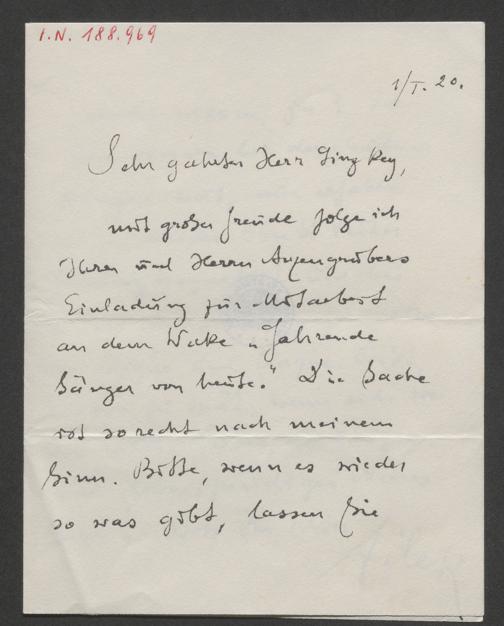 I.N. 188.969
1/I. 20.
Sehr geehrter Herr
mit großer Freude folge ich
Ihrer und Herrn Anzengrubers
Einladung zur Mitarbeit
an dem Werke „Fahrende
Sänger von heute." Die Sache
ist so recht nach meinem
Sinn. Bitte, wenn es wieder
so was gibt, lassen Sie